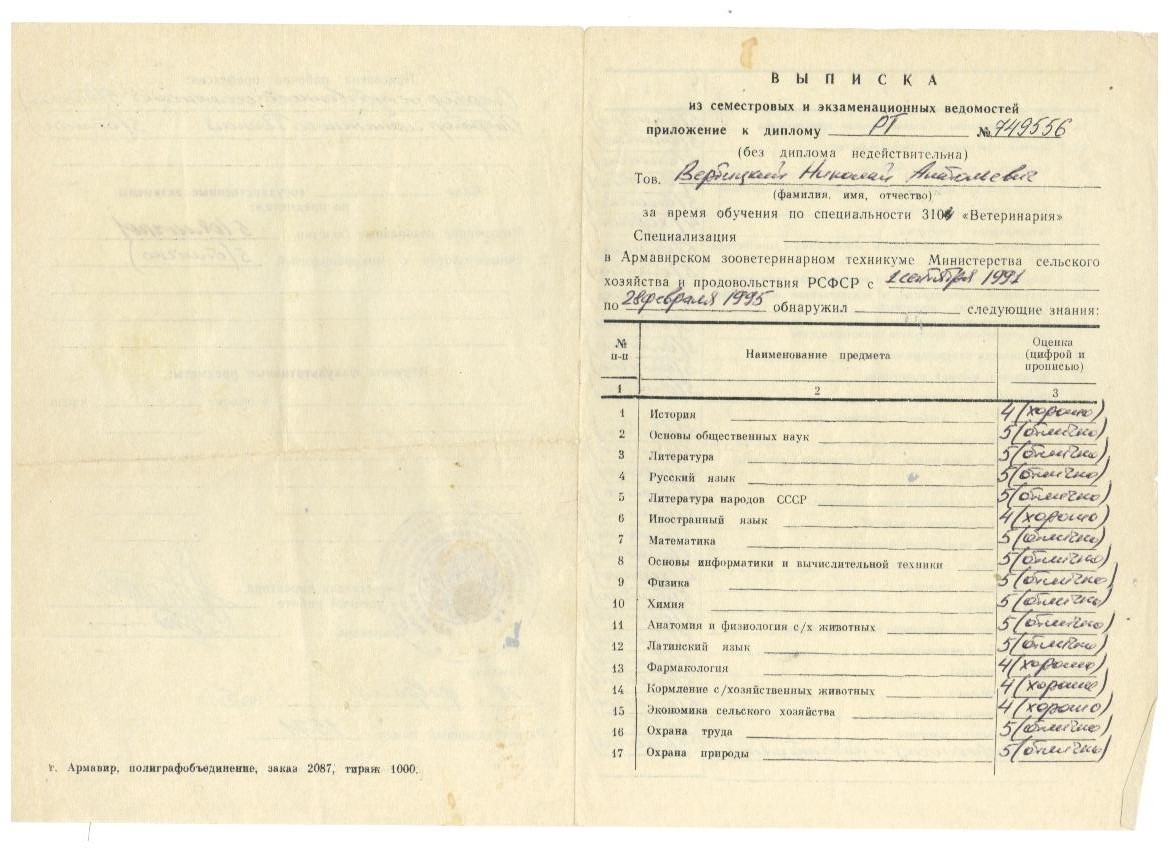 ВЫПИСКА
из семестровых и экзаменационных ведомостей
приложение к диплому РТ № 749556
(без диплома недействительна)
Тов. Вертицкий Николай Анатольевич
(фамилия, имя, отчество)
за время обучения по специальности 3104 «Ветеринария»
Специализация
в Армавирском зооветеринарном техникуме Министерства сельского
хозяйства и продовольствия РСФСР с 1 сентября 1991
по 28 февраля 1995 обнаружил следующие знания:
№ п-п Наименование предмета Оценка (цифрой и прописью)
1 2 3
1 История 4 (хорошо)
2 Основы общественных наук 5 (отлично)
3 Литература 5 (отлично)
4 Русский язык 5 (отлично)
5 Литература народов СССР 5 (отлично)
6 Иностранный язык 4 (хорошо)
7 Математика 5 (отлично)
8 Основы информатики и вычислительной техники 5 (отлично)
9 Физика 5 (отлично)
10 Химия 5 (отлично)
11 Анатомия и физиология с/х животных 5 (отлично)
12 Латинский язык 5 (отлично)
13 Фармакология 4 (хорошо)
14 Кормление с/хозяйственных животных 4 (хорошо)
15 Экономика сельского хозяйства 4 (хорошо)
16 Охрана труда 5 (отлично)
17 Охрана природы 5 (отлично)
г. Армавир, полиграфобъединение, заказ 2087, тираж 1000.